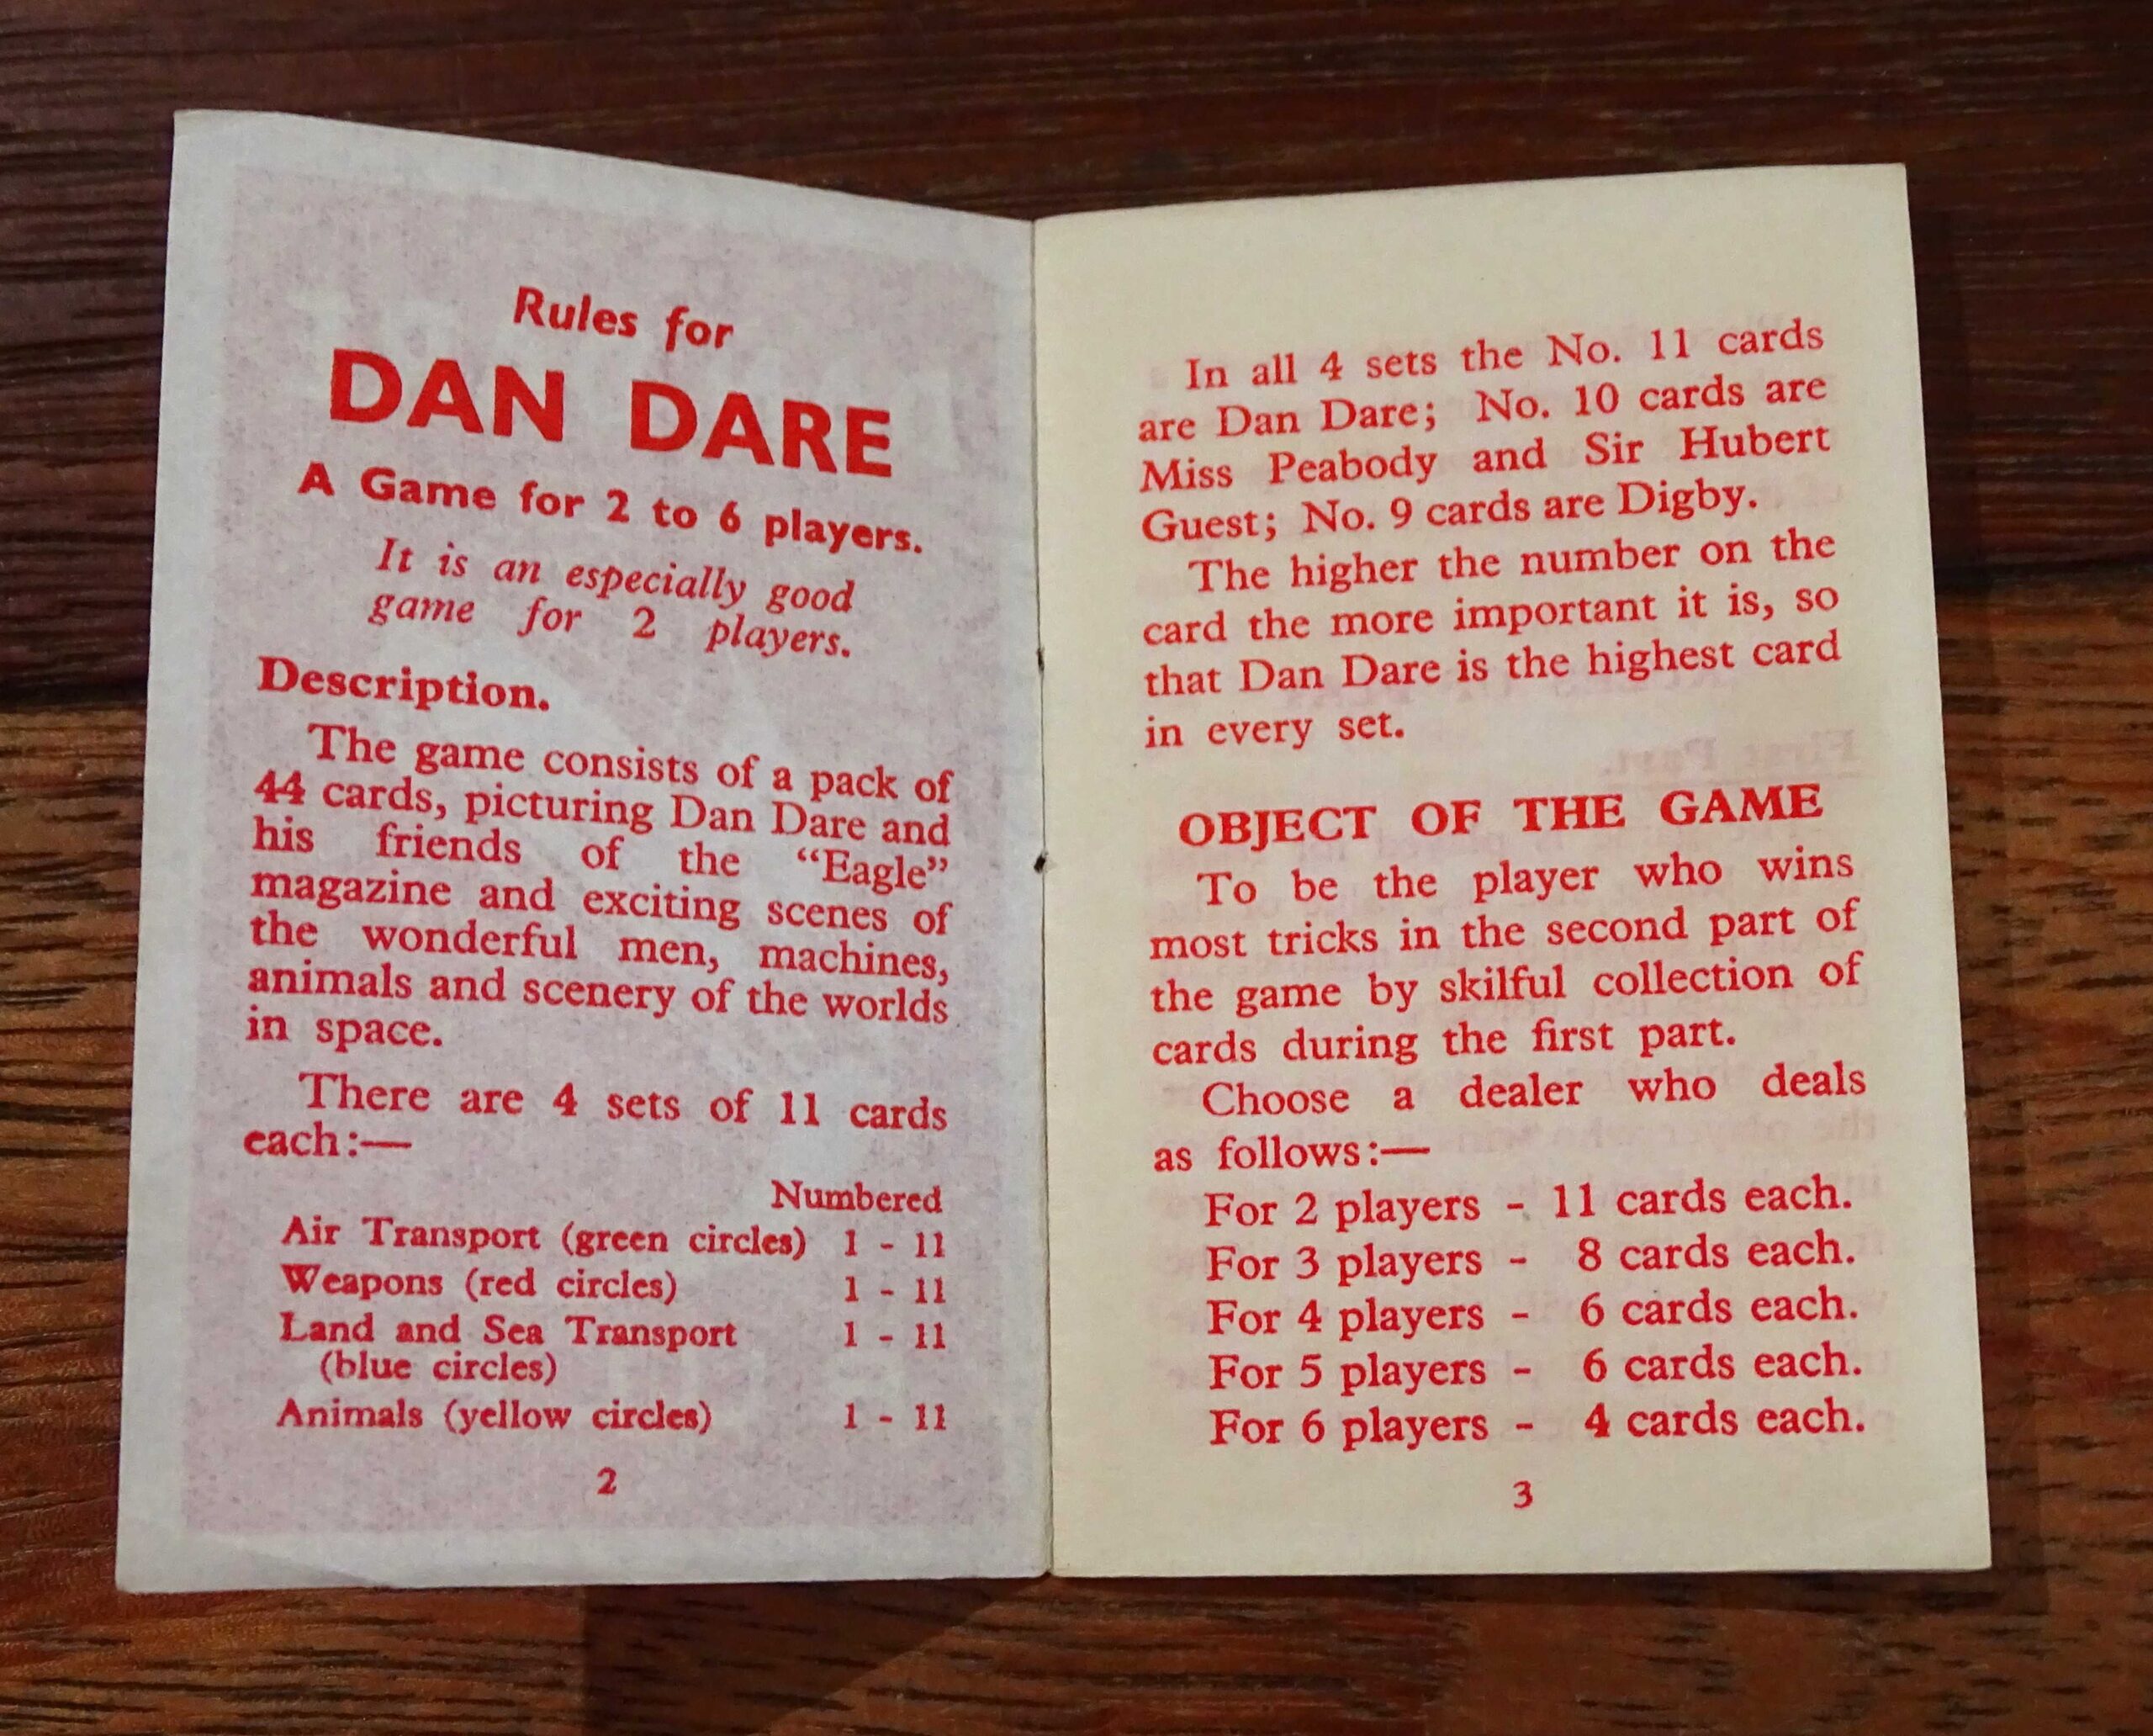 Rules for
DAN DARE
A Game for 2 to 6 players.
It is an especially good
game for 2 players.
Description.
The game consists of a pack of
44 cards, picturing Dan Dare and
his friends of the “Eagle”
magazine and exciting scenes of
the wonderful men, machines,
animals and scenery of the worlds
in space.
There are 4 sets of 11 cards
each:—
Numbered
Air Transport (green circles) 1 - 11
Weapons (red circles) 1 - 11
Land and Sea Transport 1 - 11
(blue circles)
Animals (yellow circles) 1 - 11
2
In all 4 sets the No. 11 cards
are Dan Dare; No. 10 cards are
Miss Peabody and Sir Hubert
Guest; No. 9 cards are Digby.
The higher the number on the
card the more important it is, so
that Dan Dare is the highest card
in every set.
OBJECT OF THE GAME
To be the player who wins
most tricks in the second part of
the game by skilful collection of
cards during the first part.
Choose a dealer who deals
as follows:—
For 2 players - 11 cards each.
For 3 players - 8 cards each.
For 4 players - 6 cards each.
For 5 players - 6 cards each.
For 6 players - 4 cards each.
3